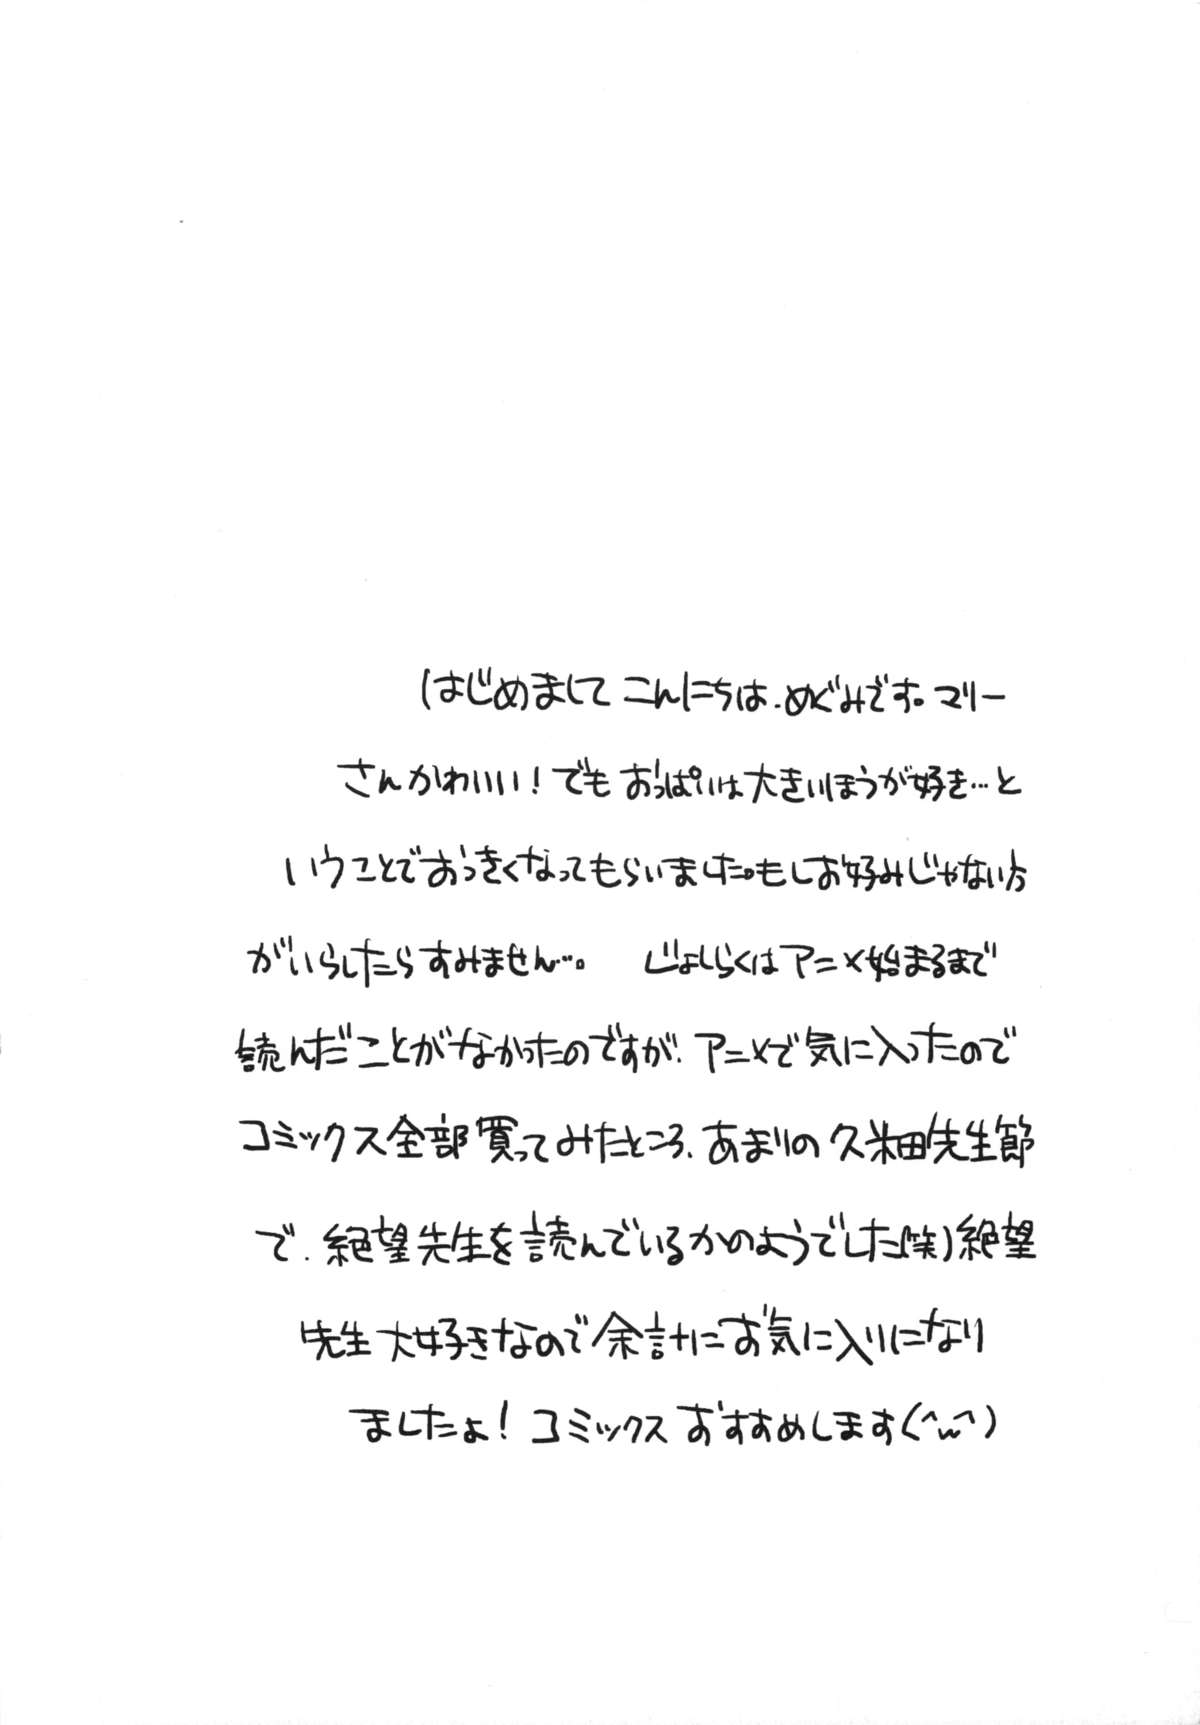 はじめまして こんにちは、めぐみです。マリー
さんかわいい！でも おっぱいは大きいほうが好き…と
いうことでおっきくなってもらいました。もしお好みじゃない方
がいらしたらすみません…。 じょしらくはアニメ始まるまで
読んだことがなかったのですが、アニメで気に入ったので
コミックス全部買ってみたところ、あまりの久米田先生節
で、絶望先生を読んでいるかのようでした(笑)絶望
先生大好きなので余計にお気に入りになり
ましたよ！コミックスおすすめします(^w^)